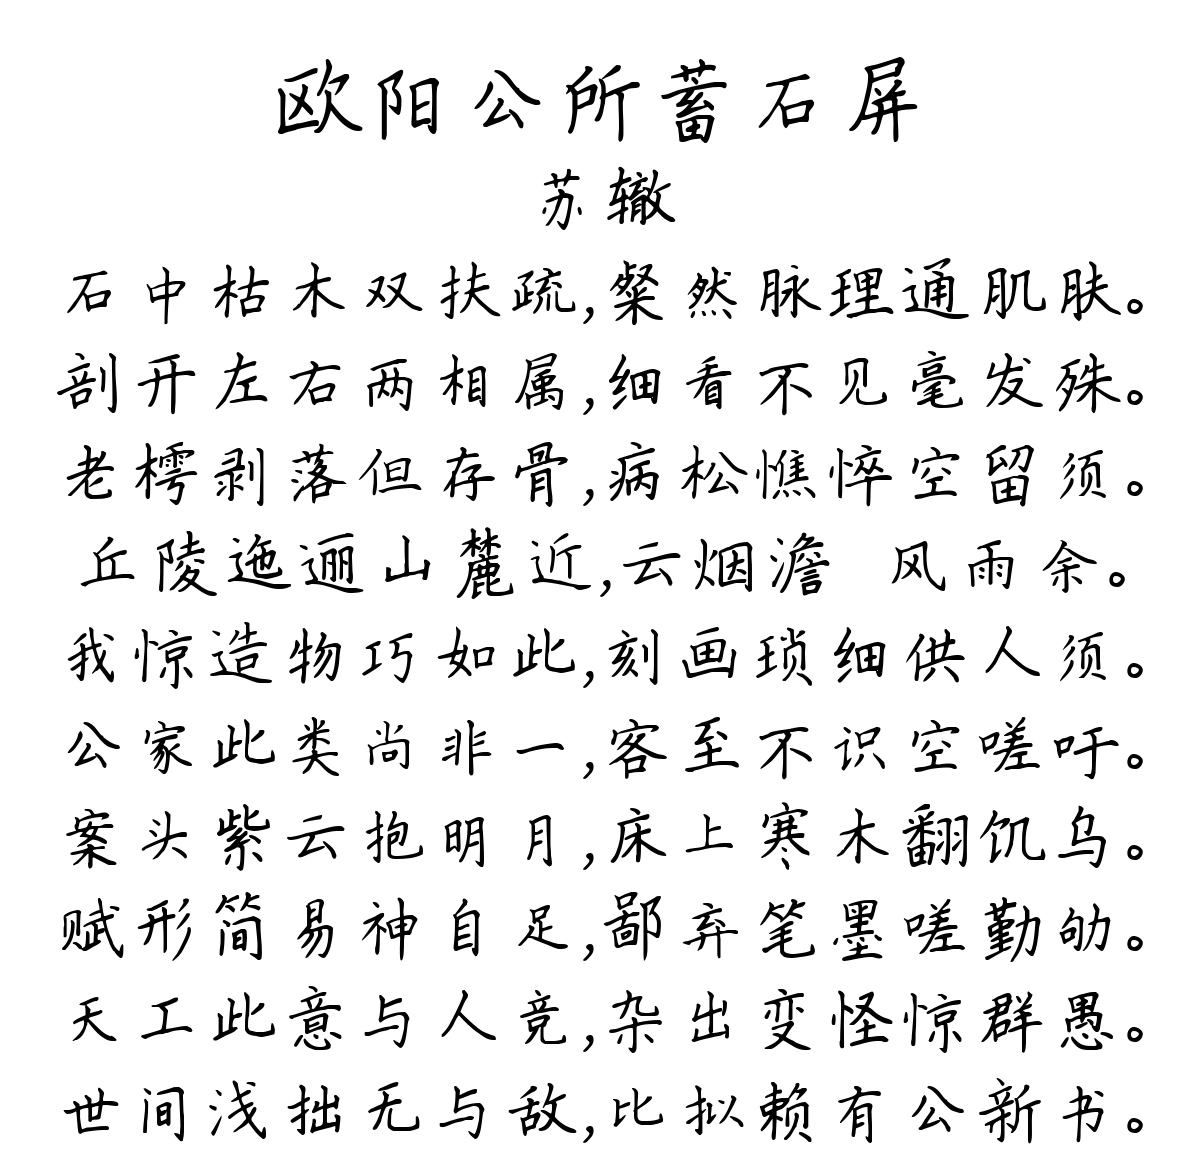 欧阳公所蓄石屏
苏辙
石中枯木双扶疏,粲然脉理通肌肤。
剖开左右两相属,细看不见毫发殊。
老樗剥落但存骨,病松憔悴空留须。
丘陵迤逦山麓近,云烟澹 风雨余。
我惊造物巧如此,刻画琐细供人须。
公家此类尚非一,客至不识空嗟吁。
案头紫云抱明月,床上寒木翻饥乌。
赋形简易神自足,鄙弃笔墨嗟勤劬。
天工此意与人竞,杂出变怪惊群愚。
世间浅拙无与敌,比拟赖有公新书。